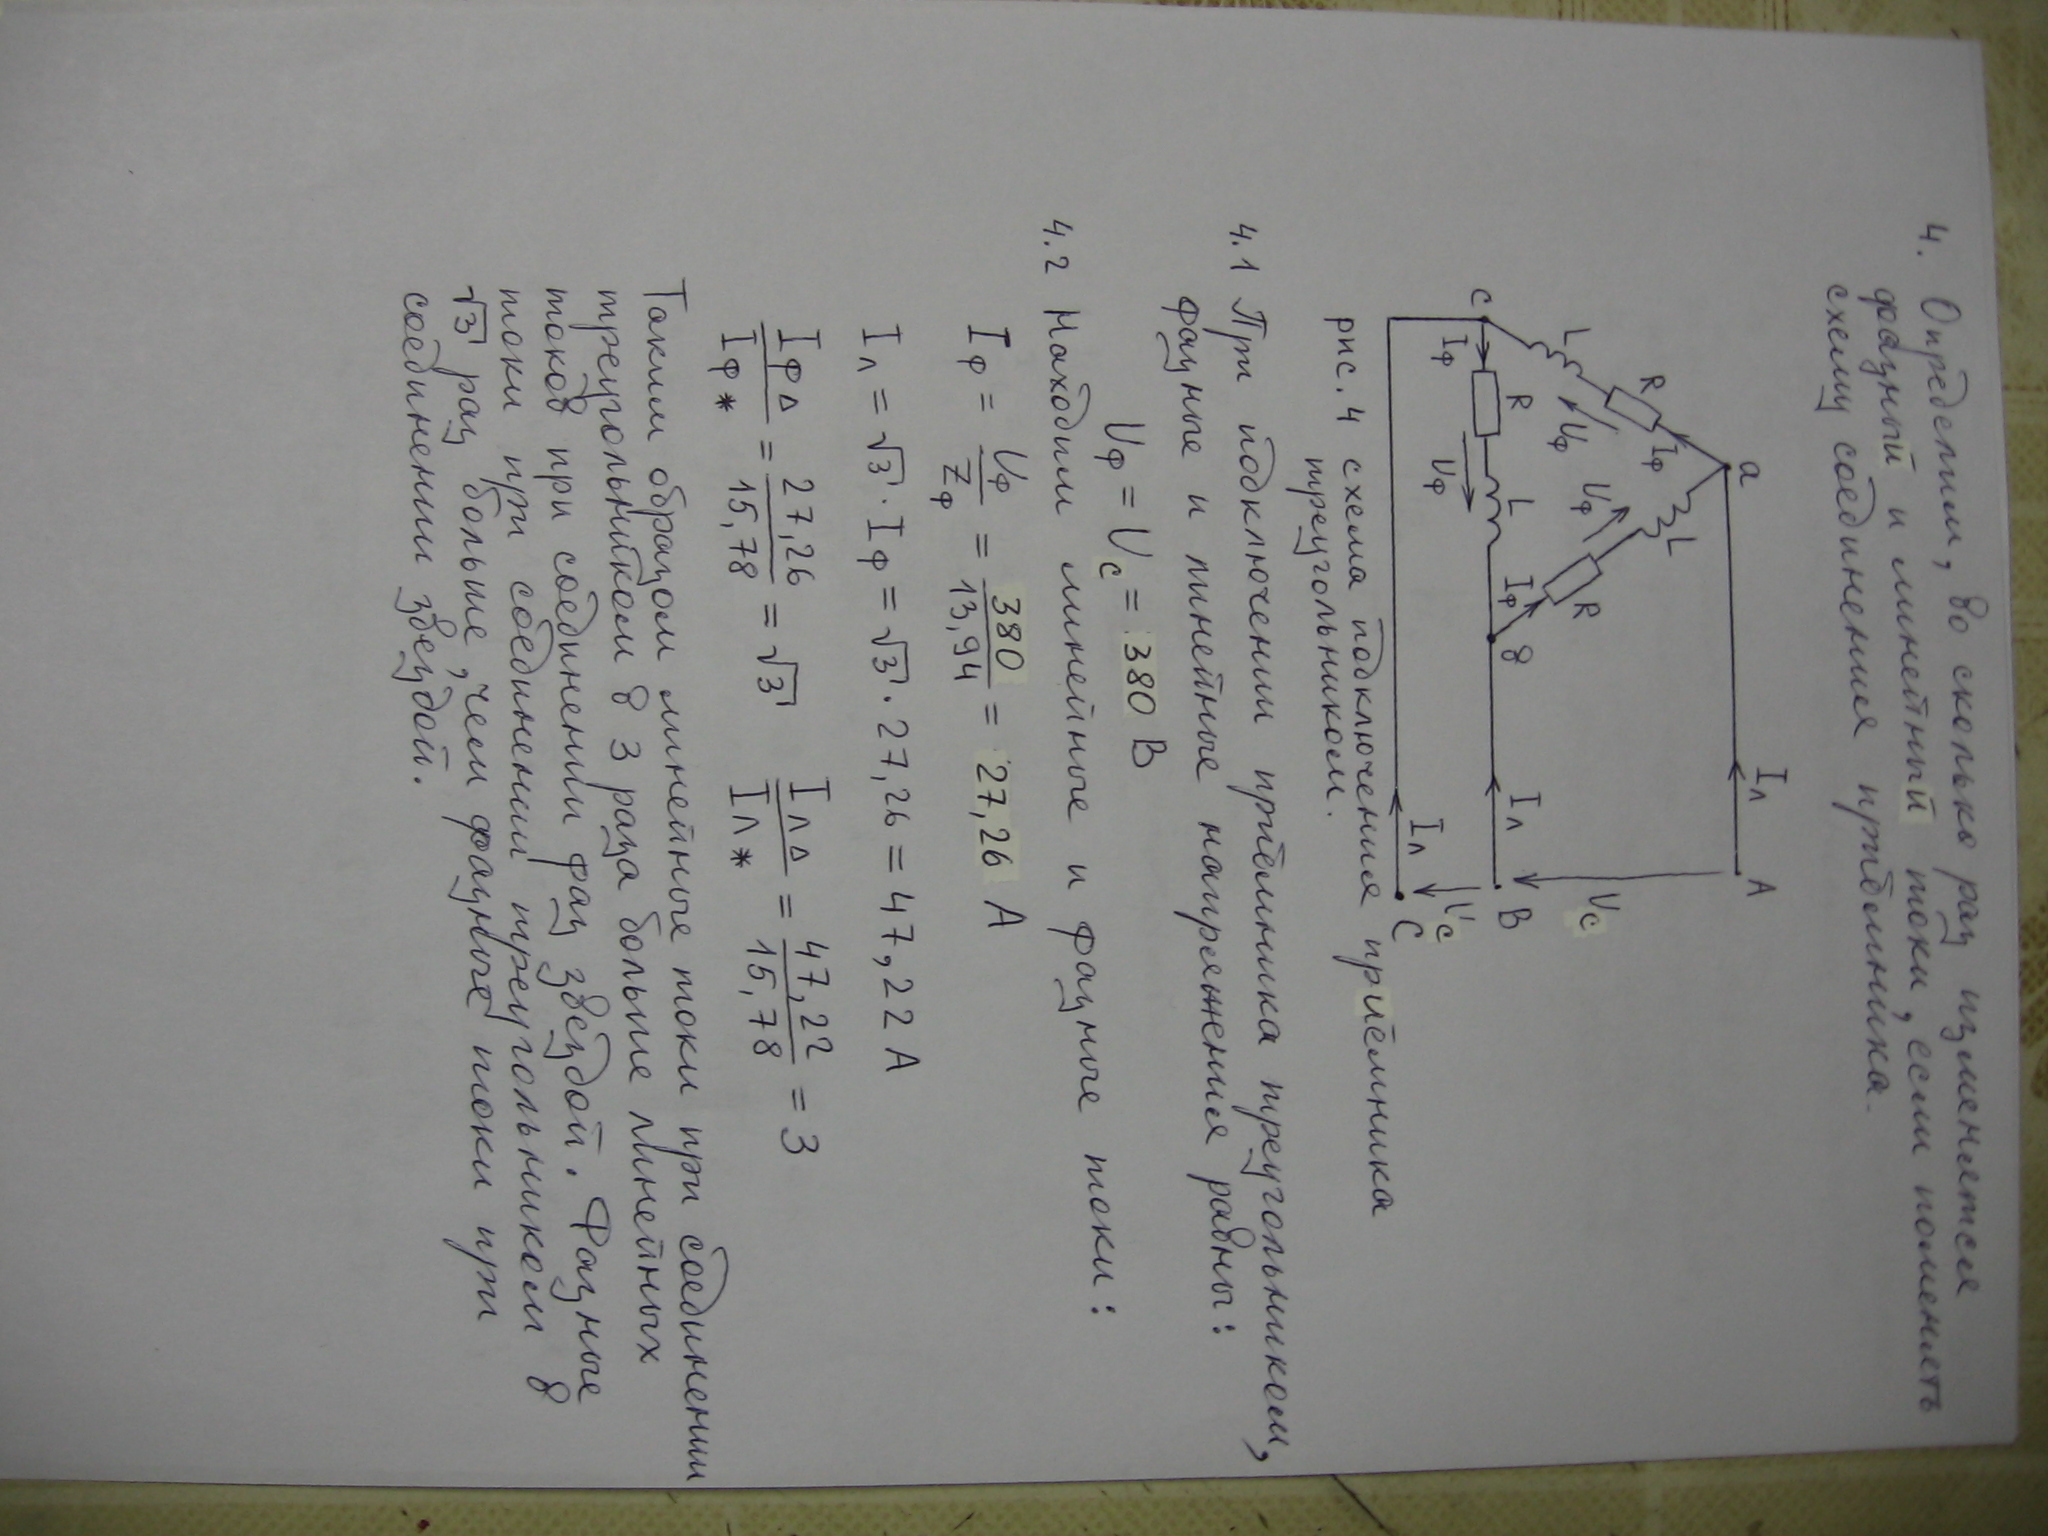 4. Определим, во сколько раз изменятся
фазный и линейный токи, если поменять
схему соединения приёмника.
a
Iл
A
R
Iф
L
L
Uф
Uф
R
Uс
Iф
c
R
L
в
Iл
B
Iф
Uф
Uс
Iл
C
рис. 4 схема подключения приёмника
треугольником.
4.1 При подключении приёмника треугольником,
фазные и линейные напряжения равны:
Uф = Uс = 380 В
4.2 Находим линейные и фазные токи:
Iф = Uф / Zф = 380 / 13,94 = 27,26 А
Iл = √3 · Iф = √3 · 27,26 = 47,22 А
Iф∆ / Iф* = 27,26 / 15,78 = √3 Iл∆ / Iл* = 47,22 / 15,78 = 3
Таким образом линейные токи при соединении
треугольником в 3 раза больше линейных
токов при соединении фаз звездой. Фазные
токи при соединении треугольником в
√3 раз больше, чем фазные токи при
соединении звездой.